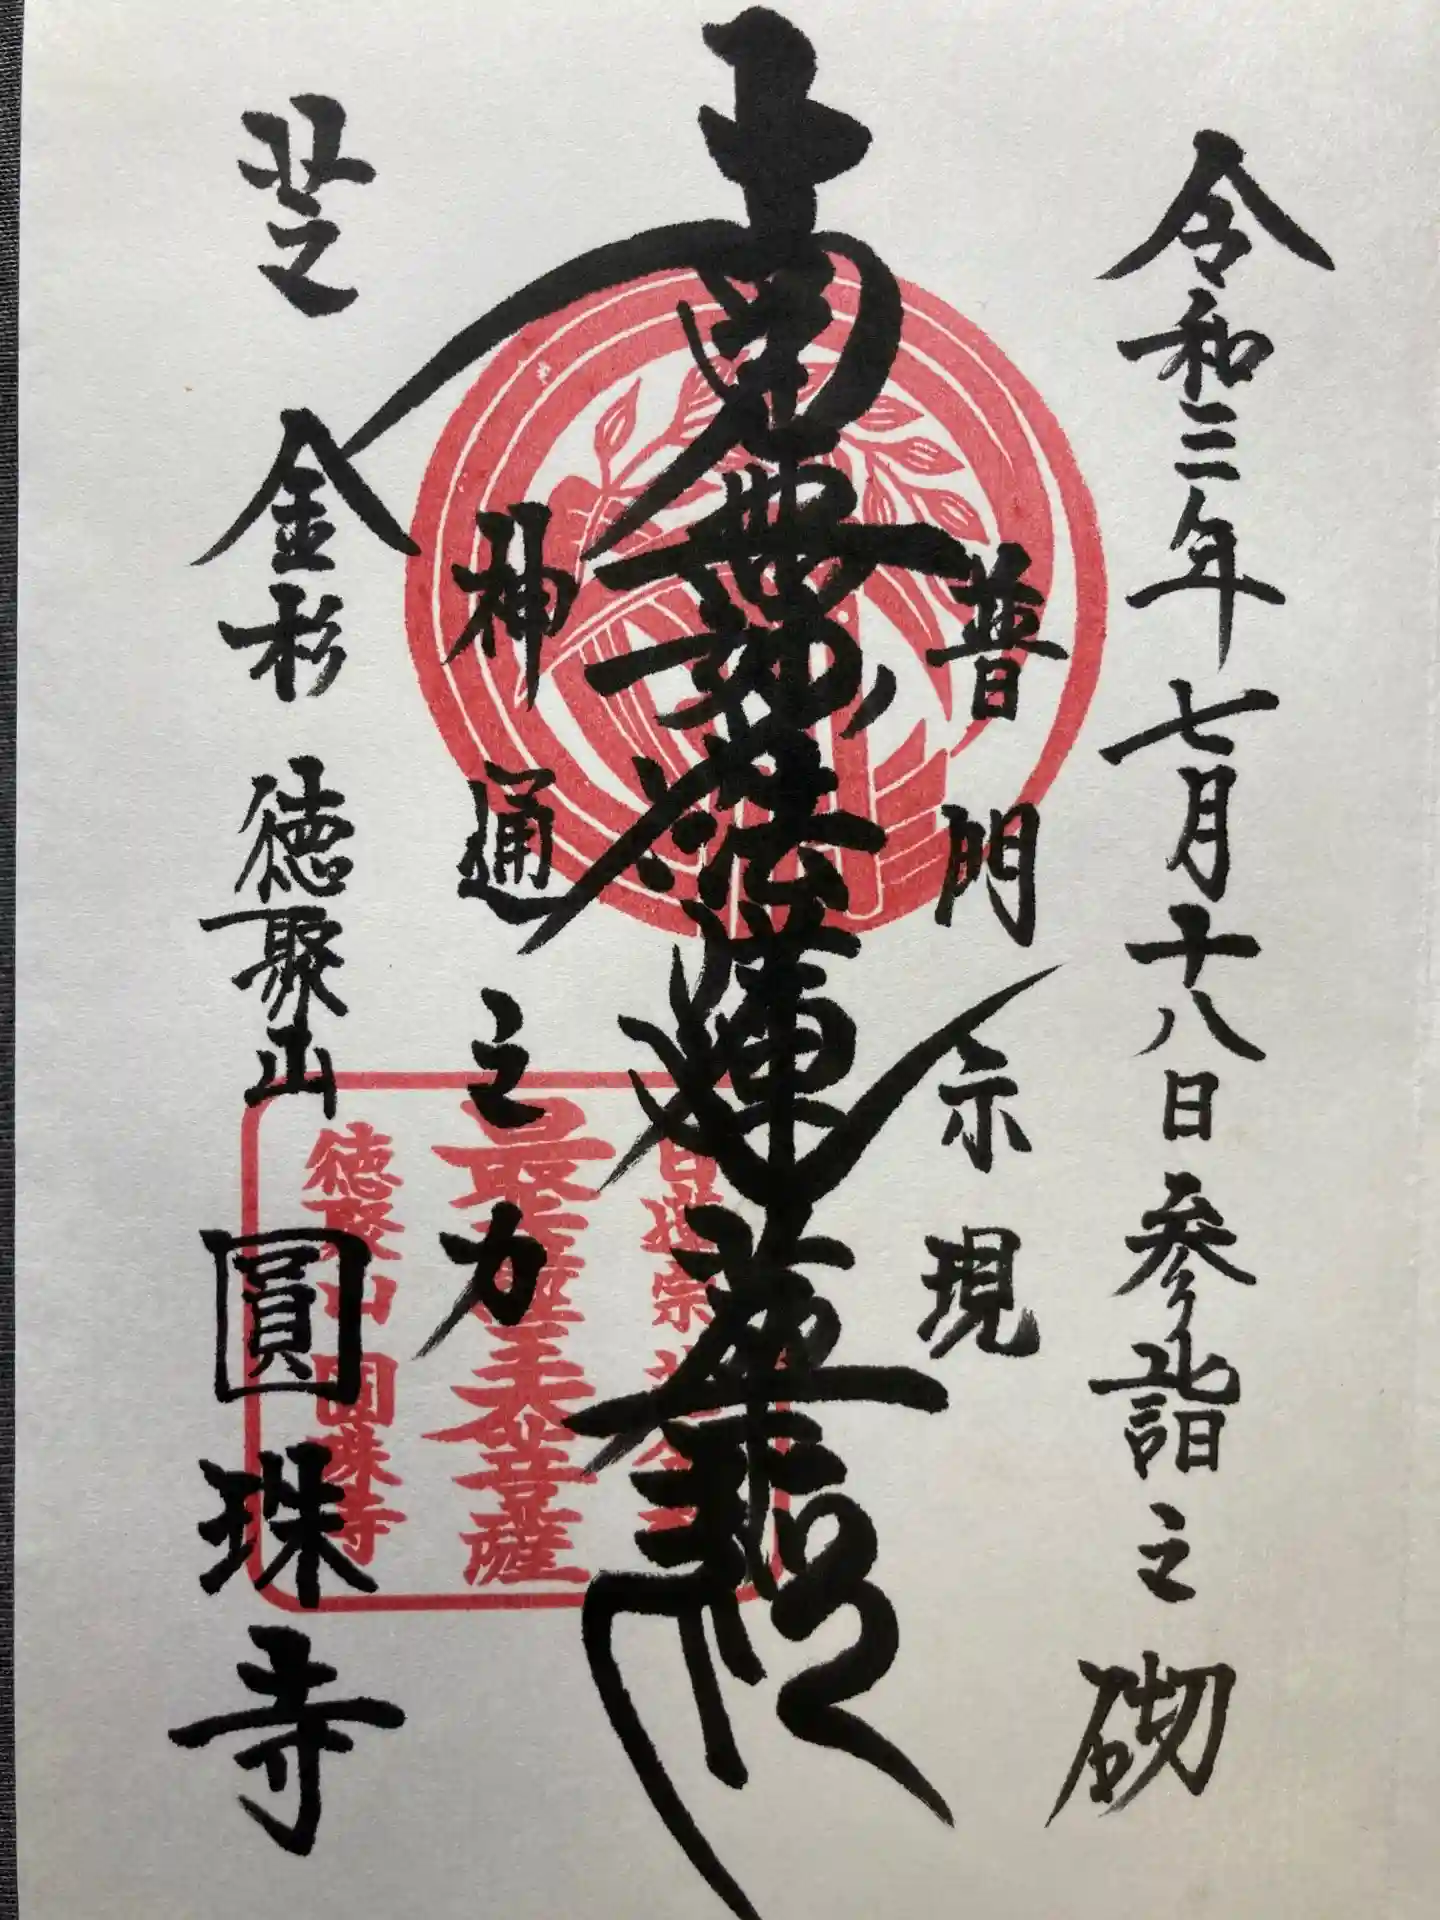 令和二年七月十八日参詣之砌
普門示現
南無妙法蓮華経
神通之力
芝金杉徳聚山圓珠寺
日蓮宗 芝金
最上位 美菩薩
徳聚山 圓珠寺